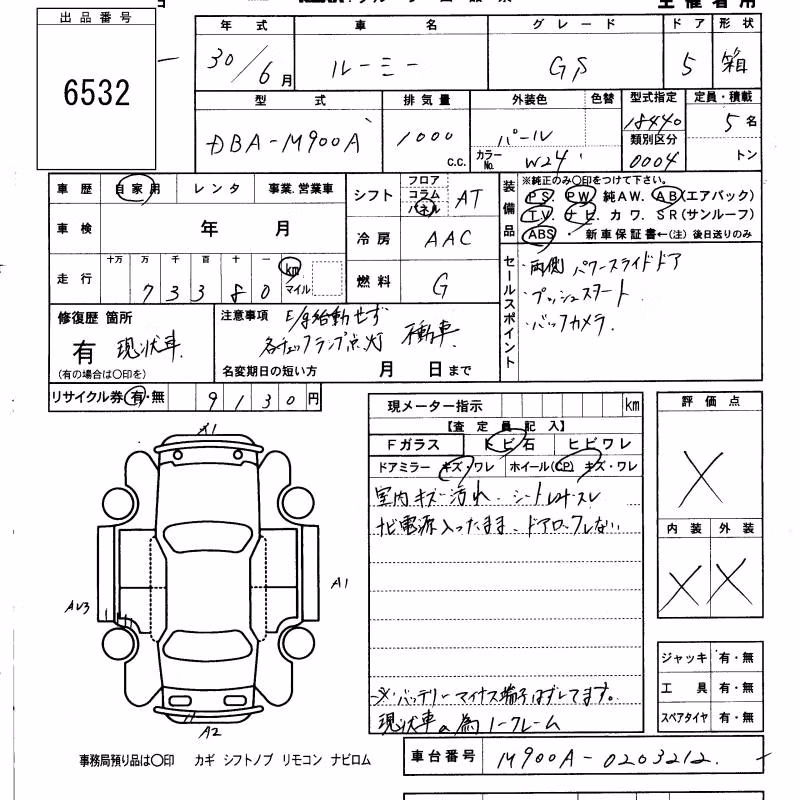 出品番号
6532
年式 車名 グレード ドア 形状
30/6月 ルーミー GS 5 箱
型式 排気量 外装色 色替 型式指定 定員・積載
DBA-M900A 1000 c.c. パール 18440 5名
カラーNo. W24 類別区分 0004 トン
車歴 自家用 レンタ 事業.営業車
シフト フロア コラム パネル AT
車検 年 月
冷房 AAC
走行 十万 万 千 百 十 一 km マイル
73380
燃料 G
装備品 ※純正のみ〇印をつけて下さい。
PS. PW. 純AW. AB(エアバック)
TV. ナビ. カワ. SR(サンルーフ)
ABS . 新車保証書←(注) 後日送りのみ
セールスポイント
・両側パワースライドドア
・プッシュスタート
・バックカメラ.
修復歴 箇所
有 現状車.
(有の場合は〇印を)
注意事項 E/g始動せず
各チェックランプ点灯 不動車.
名変期日の短い方 月 日まで
リサイクル券 有・無 9130円
現メーター指示 km
【査定員記入】
Fガラス トビ石 ヒビワレ
ドアミラー キズ・ワレ ホイール(CP) キズ・ワレ
室内キズ・汚れ、シートレナースレ
ナビ電源入ったまま、ドアロックしない
※・バッテリーマイナス端子はずしてます。
現状車の為ノークレーム
評価点
X
内装 外装
X X
A1
A1
AU3
A2
ジャッキ 有・無
工具 有・無
スペアタイヤ 有・無
事務局預り品は〇印 カギ シフトノブ リモコン ナビロム
車台番号 M900A-0203212.